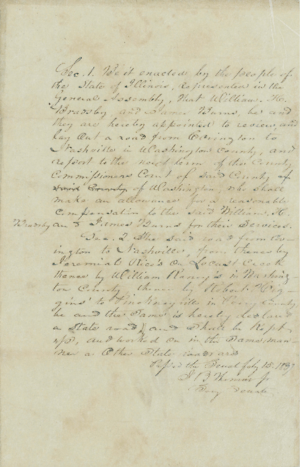 Sec. 1. Be it enacted by the people of
the State of Illinois, represented in the
General Assembly, That William H.
Bradsby and James Burns, be and
they are hereby appointed to review and
lay out a road from Covington to
Nashville in Washington County, and
report to the next term of the County
Commissioners Court of said County of
of Washington, who shall
make an allowance for a reasonable
compensation to the said William H.
Bradsby and James Burns for their services.
Sec. 2. The said road from Cov
ington to Nashville, from thence by
on Locust Creek
thence by William in Washing
ton County, thence by
to Pinckneyville in Perry County
be and the same is hereby declared
a State road, and shall be kept
up, and worked on in the same man
ner as other State roads are
the Senate